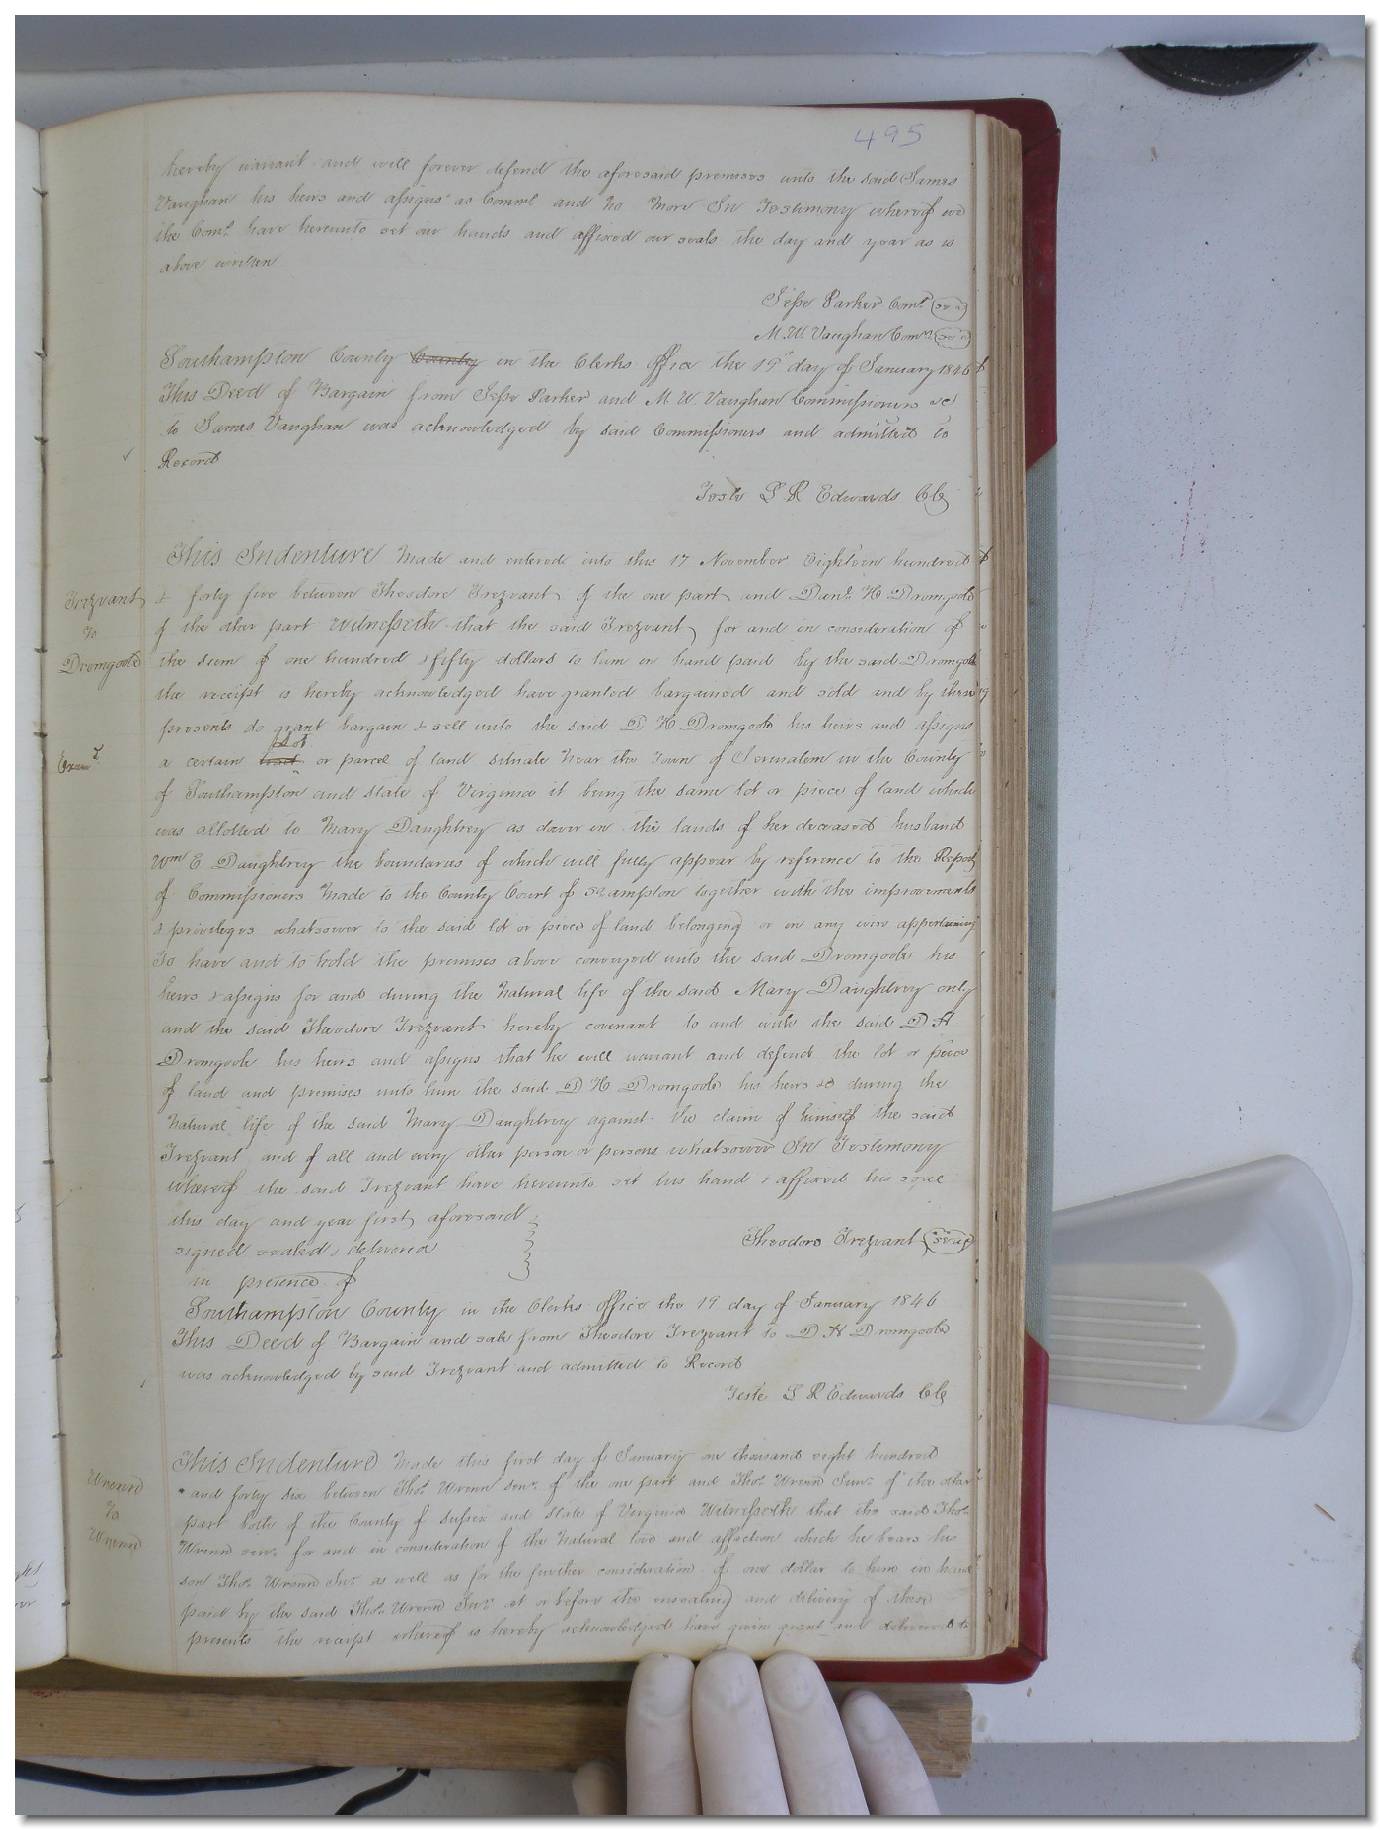 495
hereby warrant and will forever defend the aforesaid premises unto the said James
Vaughan his heirs and assigns as Comrs and no more In Testimony whereof we
the Comrs have hereunto set our hands and affixed our seals the day and year as is
above written
Jesse Parker Comr seal
M. W. Vaughan Comr seal
Southampton County County in the Clerks office the 19th day of January 1846
This Deed of Bargain from Jesse Parker and M. W. Vaughan Commissioners &c
to James Vaughan was acknowledged by said Commissioners and admitted to
Record
Teste L R Edwards Clk
This Indenture Made and entered into this 17 November Eighteen hundred
Trezvant & forty five between Theodore Trezvant of the one part and Danl. H Dromgoole
to of the other part Witnesseth that the said Trezvant for and in consideration of
Dromgoole the sum of one hundred & fifty dollars to him in hand paid by the said Dromgoole
the receipt is hereby acknowledged have granted bargained and sold and by these
presents do grant bargain & sell unto the said D H Dromgoole his heirs and assigns
Examd a certain tract lot or parcel of land situate near the Town of Jerusalem in the County
of Southampton and state of Virginia it being the same lot or piece of land which
was allotted to Mary Daughtrey as dower in the lands of her deceased husband
Wm E Daughtrey the boundaries of which will fully appear by reference to the Report
of Commissioners made to the County Court of Shampton together with the improvements
& privileges whatsoever to the said lot or piece of land belonging or in any wise appertaining
To have and to hold the premises above conveyed unto the said Dromgoole his
heirs & assigns for and during the Natural life of the said Mary Daughtrey only
and the said Theodore Trezvant hereby covenant to and with the said D H
Dromgoole his heirs and assigns that he will warrant and defend the lot or piece
of land and premises unto him the said D H Dromgoole his heirs &c during the
Natural life of the said Mary Daughtrey against the claim of himself the said
Trezvant and of all and every other person or persons whatsoever In Testimony
whereof the said Trezvant have hereunto set his hand & affixed his seal
this day and year first aforesaid
signed sealed & delivered Theodore Trezvant seal
in presence of
Southampton County in the Clerks office the 19 day of January 1846
This Deed of Bargain and sale from Theodore Trezvant to D H Dromgoole
was acknowledged by said Trezvant and admitted to Record
Teste L R Edwards Clk
This Indenture Made this first day of January one thousand eight hundred
Wrenn and forty six between Thos. Wrenn senr. of the one part and Thos. Wrenn Junr. of the other
to part both of the County of Sussex and state of Virginia Witnesseth that the said Thos.
Wrenn Wrenn senr. for and in consideration of the Natural love and affection which he bears his
son Thos. Wrenn Jnr as well as for the further consideration of one dollar to him in hand
paid by the said Thos. Wrenn Jnr at or before the ensealing and delivery of these
presents the receipt whereof is hereby acknowledged have given grant and delivered to